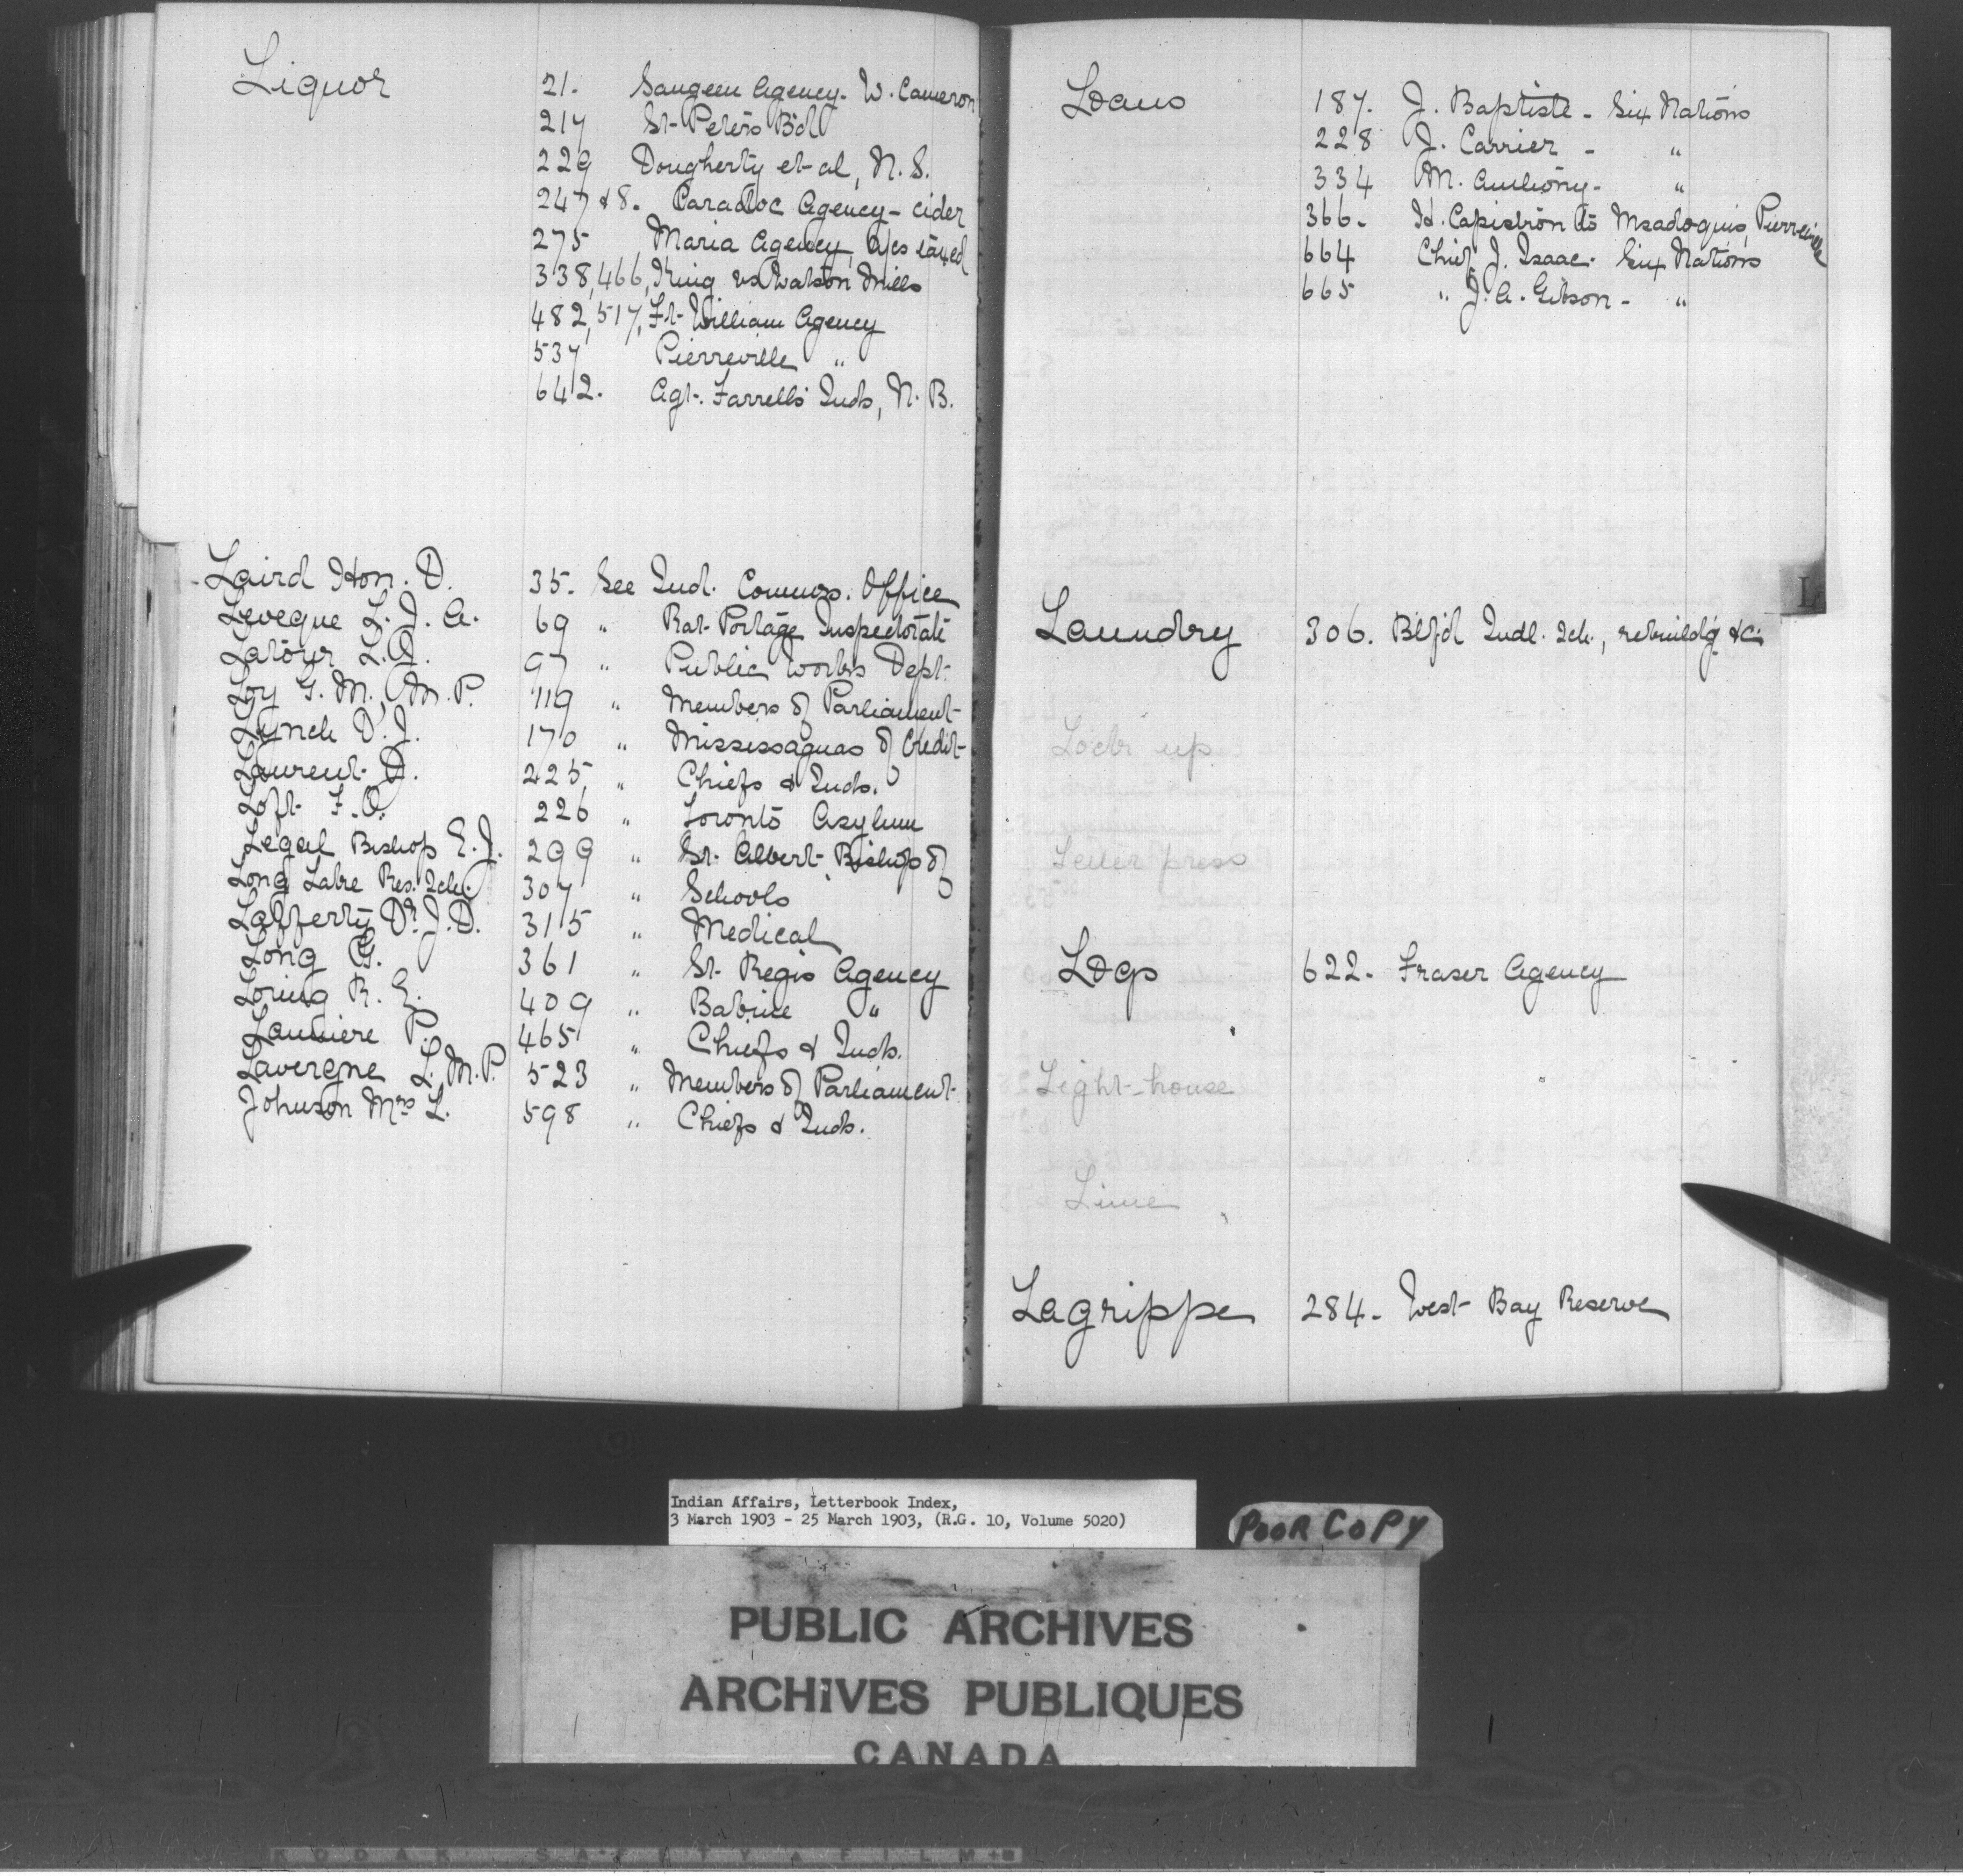 Liquor 21. Saugeen Agency. W. Cameron
217 St. Peters B'd
229 Dougherty et al, N. S.
247 & 8. Caradoc Agency - cider
275 Maria Agency, a/cs taxed
338, 466, King vs Watson Mills
482, 517, Ft. William Agency
537 Pierreville "
642. Agt. Farrell's Inds, N. B.
Laird Hon. D. 35. See Ind. Commrs. Office
Leveque L. J. A. 69 " Rat Portage Inspectorate
Latour L. J. 97 " Public Works Dept.
Loy G. M., M. P. 119 " Members of Parliament
Lynch D. J. 170 " Mississaguas of Credit
Laurent J. 225, " Chiefs & Inds.
Loft F. O. 226 " Toronto Asylum
Legal Bishop E. J. 299 " St. Albert Bishop of
Long Lake Res. Sch. 307 " Schools
Lafferty Dr. J. D. 315 " Medical
Long G. 361 " St. Regis Agency
Loring R. E. 409 " Babine "
P. 465 " Chiefs & Inds.
Lavergne L. M. P. 523 " Members of Parliament
Johnson Mrs L. 598 " Chiefs & Inds.
Loans 187. J. Baptiste - Six Nations
228 J. Carrier - "
334 M. Anthony - "
366. H. Capistron to Msadoquis, Pierreville
664 Chief J. Isaac. Six Nations
665 " J. A. Gibson - "
L
Laundry 306. Btf'd Indl. Sch., rebuildg &c.
Lock up
Letter press
Logs 622. Fraser Agency
Light-house
Lime
Lagrippe 284. West Bay Reserve
Indian Affairs, Letterbook Index,
3 March 1903 - 25 March 1903, (R.G. 10, Volume 5020)
POOR COPY
PUBLIC ARCHIVES
ARCHIVES PUBLIQUES
CANADA
KODAK SAFETY FILM